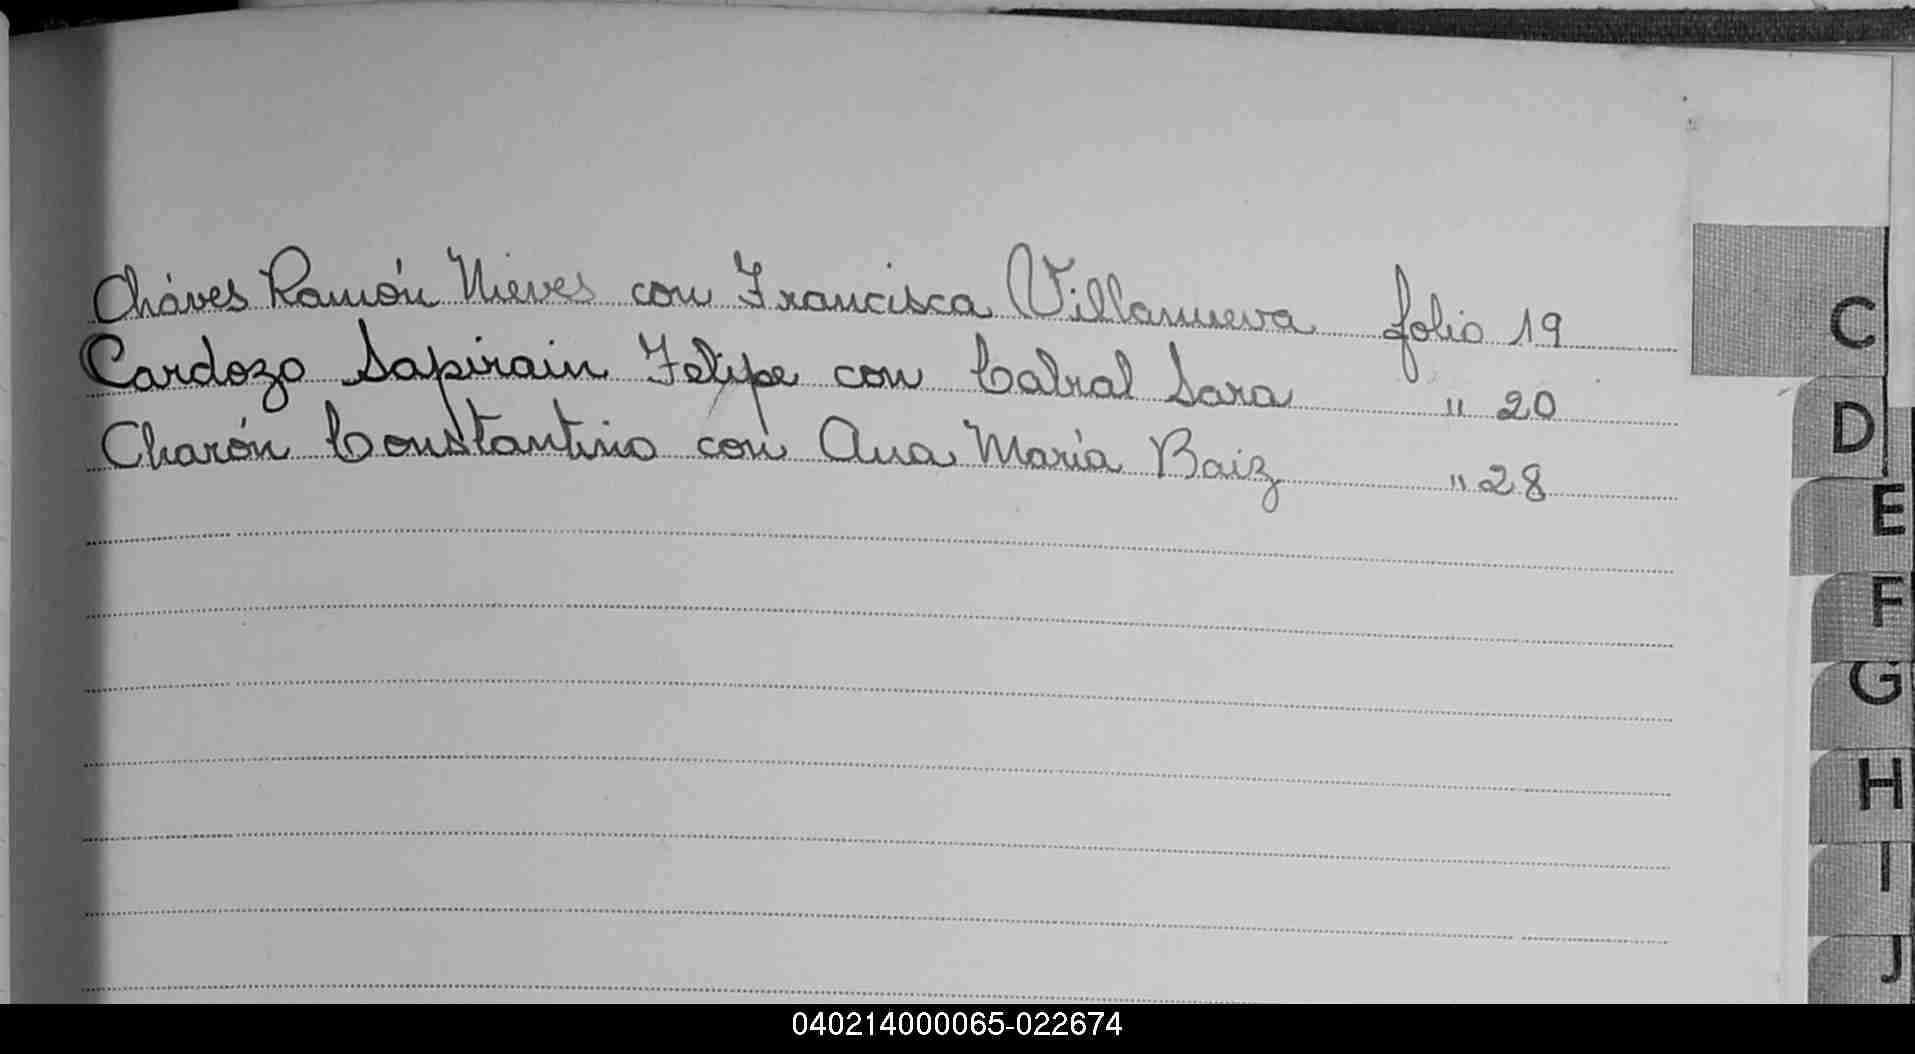 Cháves Ramón Nieves con Francisca Villanueva folio 19
Cardozo Sapirain Felipe con Cabral Sara " 20
Charón Constantino con Ana María Baiz " 28
C
D
E
F
G
H
I
J
040214000065-022674